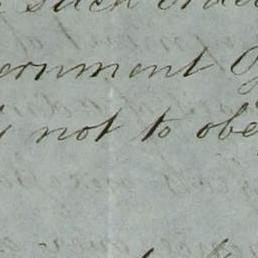 such orde
ernment O
y not to obe